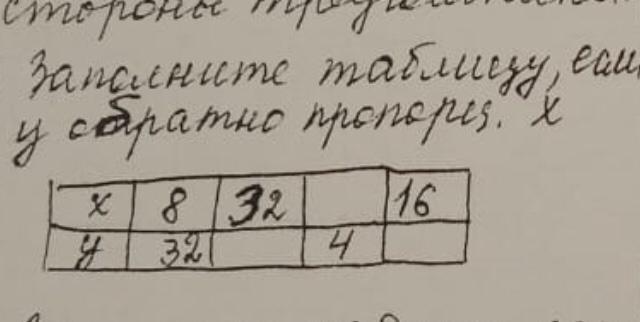 стороны треугольника
Заполните таблицу, если
у обратно пропорц. х
х 8 32 16
у 32 4